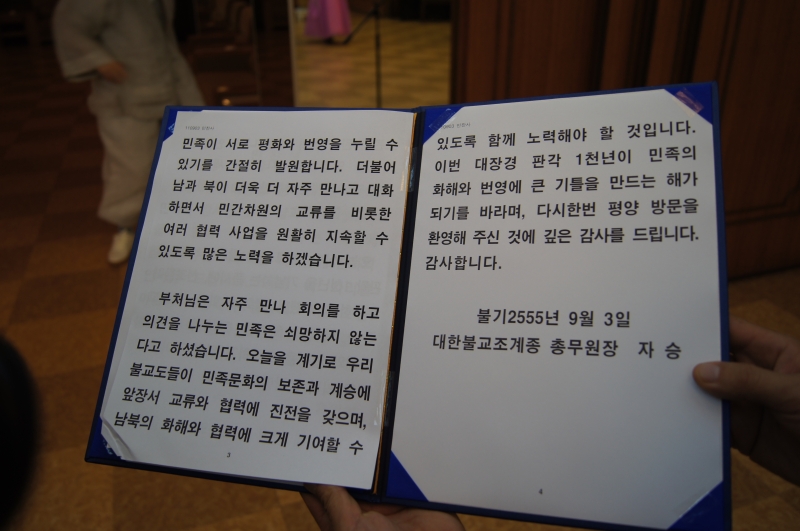 민족이 서로 평화와 번영을 누릴 수
있기를 간절히 발원합니다. 더불어
남과 북이 더욱 더 자주 만나고 대화
하면서 민간차원의 교류를 비롯한
여러 협력 사업을 원활히 지속할 수
있도록 많은 노력을 하겠습니다.
부처님은 자주 만나 회의를 하고
의견을 나누는 민족은 쇠망하지 않는
다고 하셨습니다. 오늘을 계기로 우리
불교도들이 민족문화의 보존과 계승에
앞장서 교류와 협력에 진전을 갖으며,
남북의 화해와 협력에 크게 기여할 수
3
있도록 함께 노력해야 할 것입니다.
이번 대장경 판각 1천년이 민족의
화해와 번영에 큰 기틀을 만드는 해가
되기를 바라며, 다시한번 평양 방문을
환영해 주신 것에 깊은 감사를 드립니다.
감사합니다.
불기2555년 9월 3일
대한불교조계종 총무원장 자 승
4